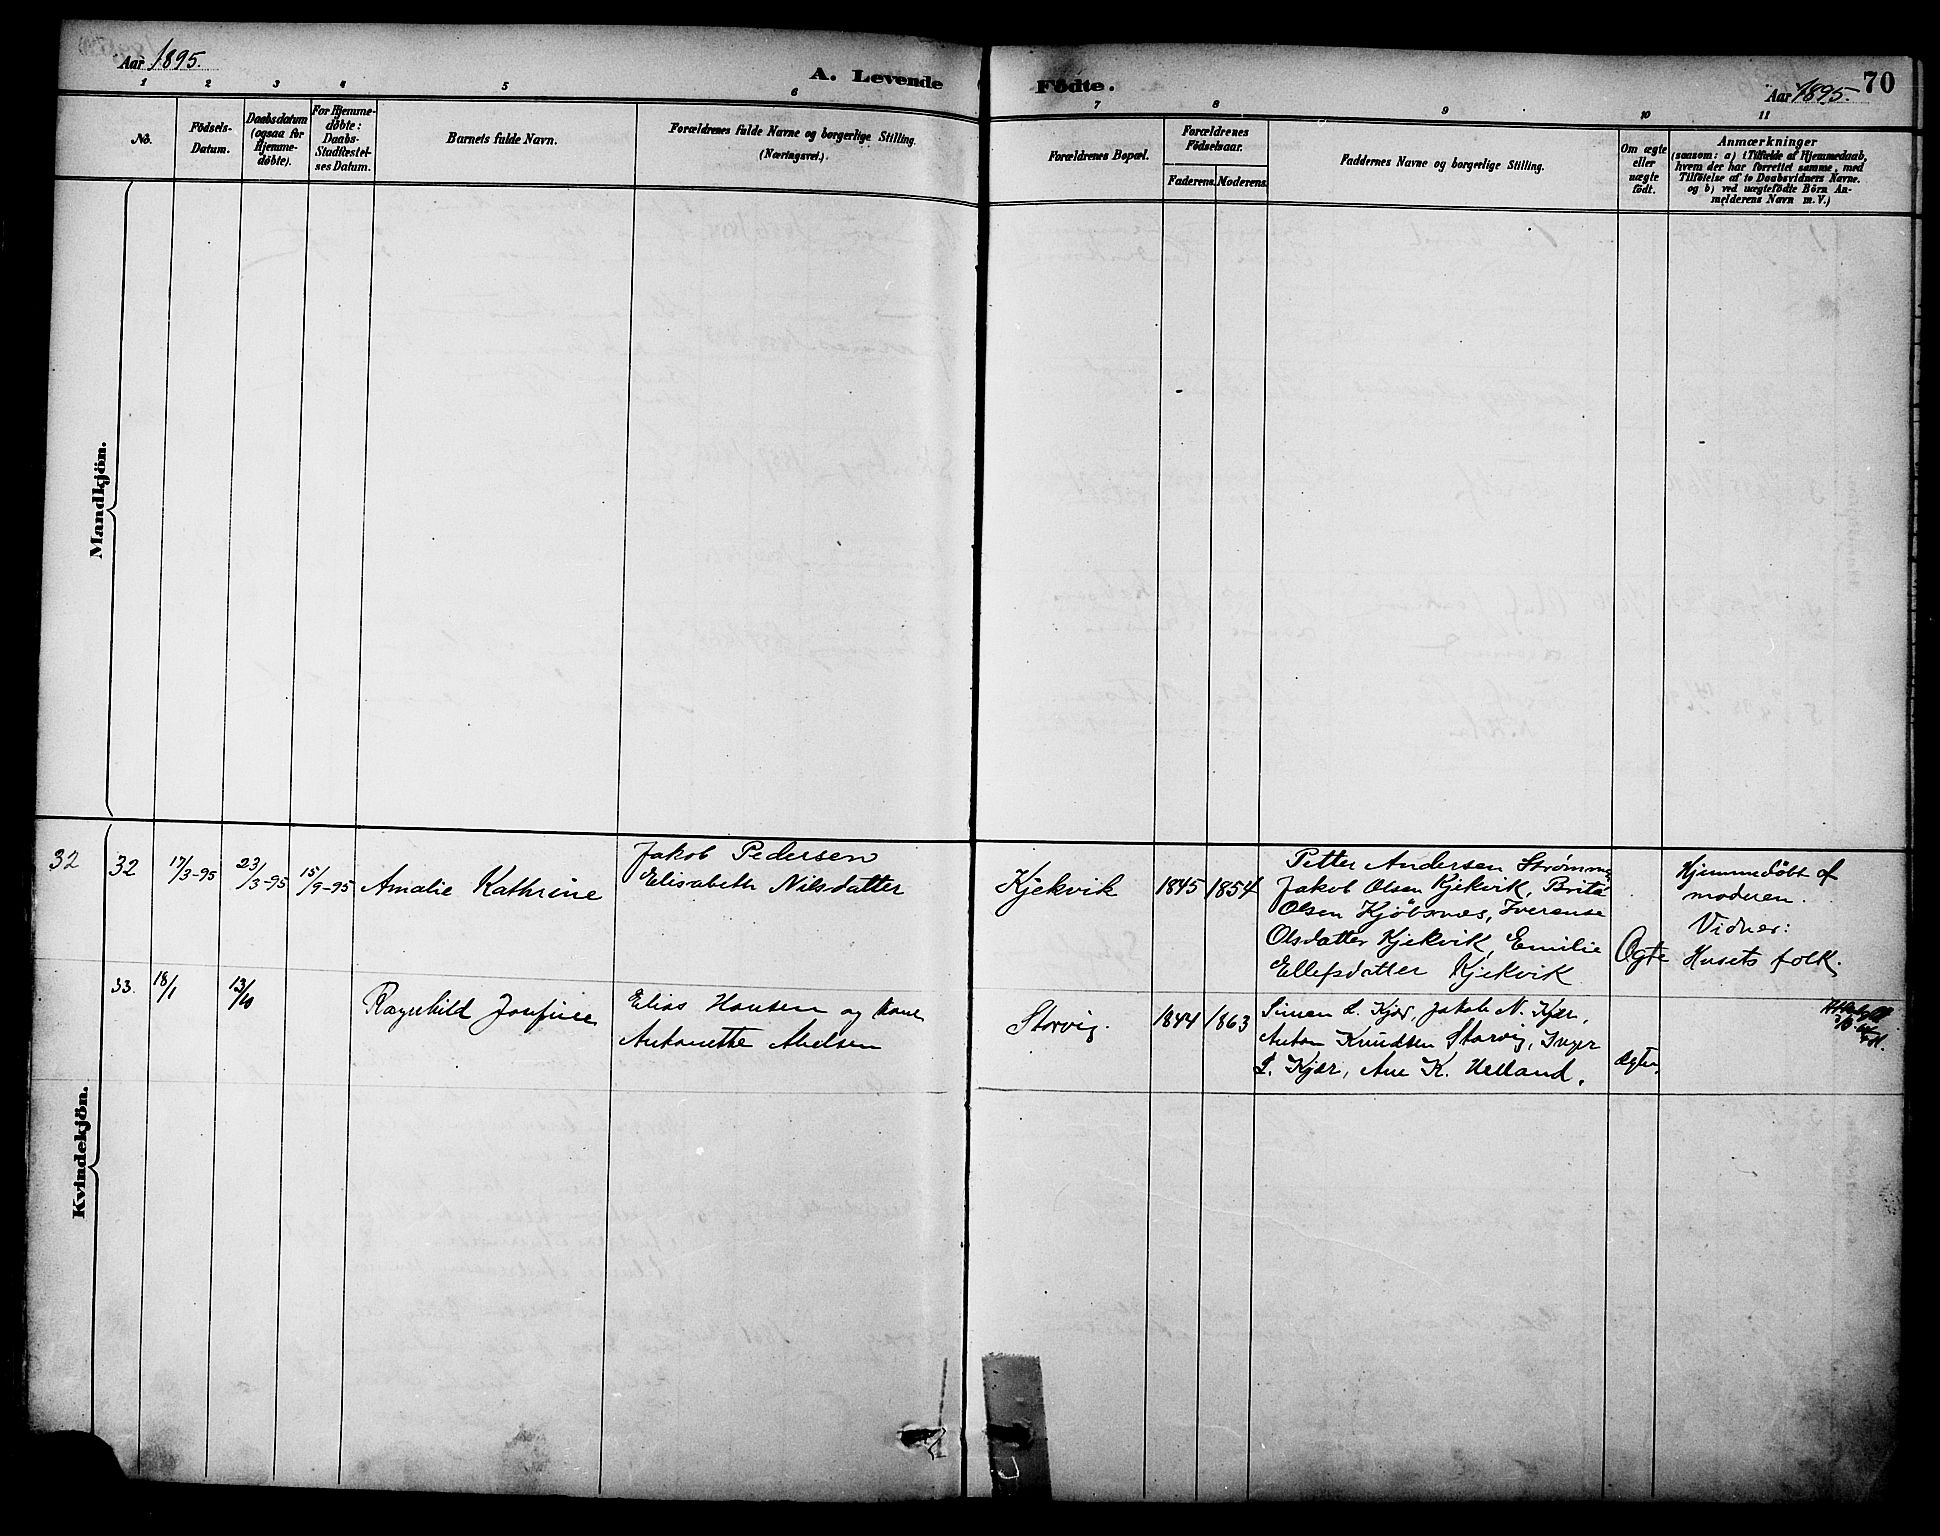 Aar 1895.
A. Levende Fødte.
Aar 1895. 70
1 2 3 4 5 6 7 8 9 10 11
No.
Fødsels-
Datum.
Daabsdatum
(ogsaa for
Hjemme-
døbte).
For Hjemme-
døbte:
Daabs-
Stadfæstel-
ses Datum.
Barnets fulde Navn.
Forældrenes fulde Navne og borgerlige Stilling.
(Næringsvei.)
Forældrenes Bopæl.
Forældrenes
Fødselsaar.
Faderens. Moderens.
Faddernes Navne og borgerlige Stilling.
Om ægte
eller
uægte
født.
Anmærkninger
(saasom: a) i Tilfælde af Hjemmedaab,
hvem der har forrettet samme, med
Tilføielse af to Daabsvidners Navne.
og b) ved uægtefødte Børn An-
melderens Navn m. V.)
Mandkjön.
Kvindekjön.
32 32 17/3-95 23/3-95 15/9-95 Amalie Kathrine
Jakob Pedersen
Elisabeth Nilsdatter
Kjekvik 1845 1854
Petter Andersen Strømmen
Jakob Olsen Kjekvik, Brita
Olsen Kjøbsnæs, Iverense
Olsdatter Kjekvik, Emilie
Ellefsdatter Kjekvik
Ægte
Hjemmedöbt af
moderen.
Vidner:
Husets folk.
33. 18/1 13/10 Ragnhild Josefine
Elias Hansen og Kone
Antonette Abelsen
Storvig. 1844 1863
Simon L. Kjær, Jakob N. Kjær,
Anton Knudsen Storvig, Inger
L. Kjær, Ane K. Helland.
ægte.